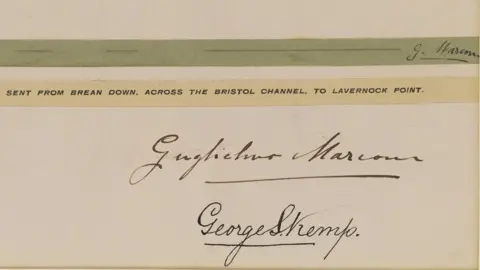 G. Marconi
SENT FROM BREAN DOWN, ACROSS THE BRISTOL CHANNEL, TO LAVERNOCK POINT.
Guglielmo Marconi
George S. Kemp.